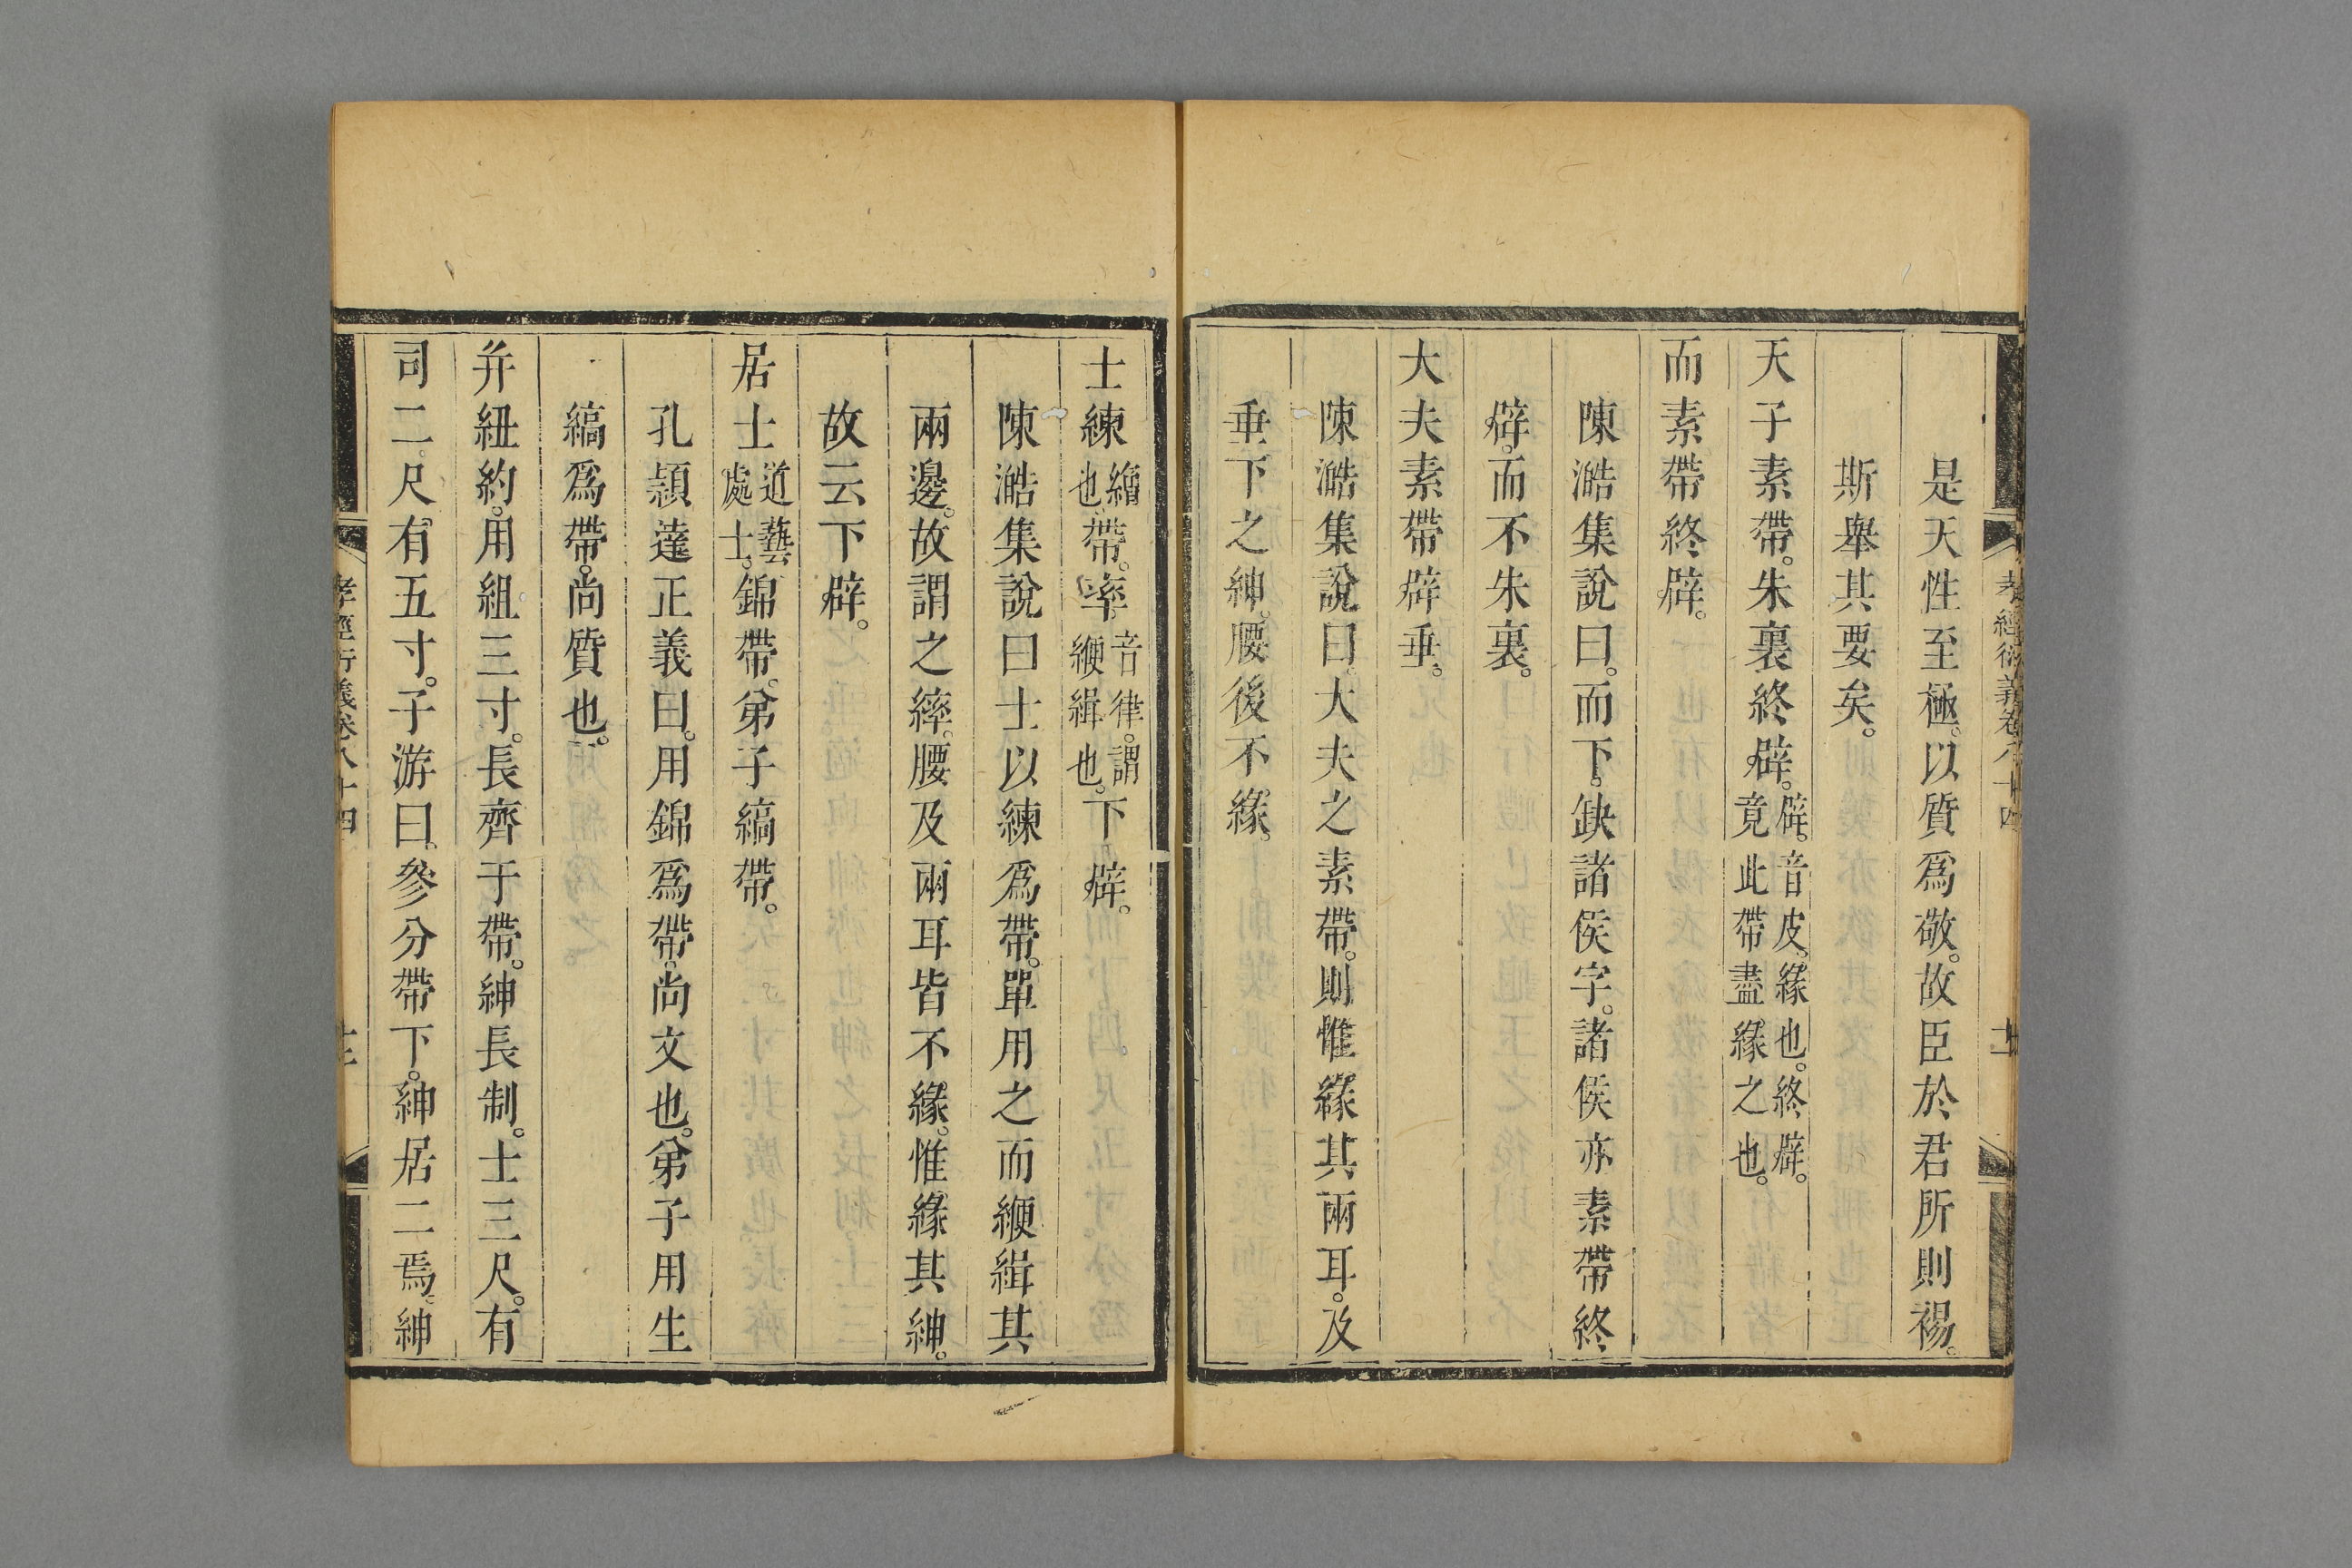 孝經衍義卷八十四
是天性至極。以質爲敬。故臣於君所則裼。
斯舉其要矣。
天子素帶。朱裏終辟。辟。音皮。緣也。終辟。竟此帶盡緣之也。
而素帶終辟。
陳澔集說曰。而下。缺諸侯字。諸侯亦素帶終
辟。而不朱裏。
大夫素帶辟垂。
陳澔集說曰。大夫之素帶。則惟緣其兩耳。及
垂下之紳。腰後不緣。
士練繒也。帶。率。音律。謂緶緝也。下辟。
陳澔集說曰士以練爲帶。單用之而緶緝其
兩邊。故謂之繂。腰及兩耳皆不緣。惟緣其紳。
故云下辟。
居士道藝處士。錦帶。弟子縞帶。
孔穎達正義曰。用錦爲帶。尚文也。弟子用生
縞爲帶。尚質也。
并紐約。用組三寸。長齊于帶。紳長制。士三尺。有
司二尺有五寸。子游曰。參分帶下。紳居二焉。紳
孝經衍義卷八十四